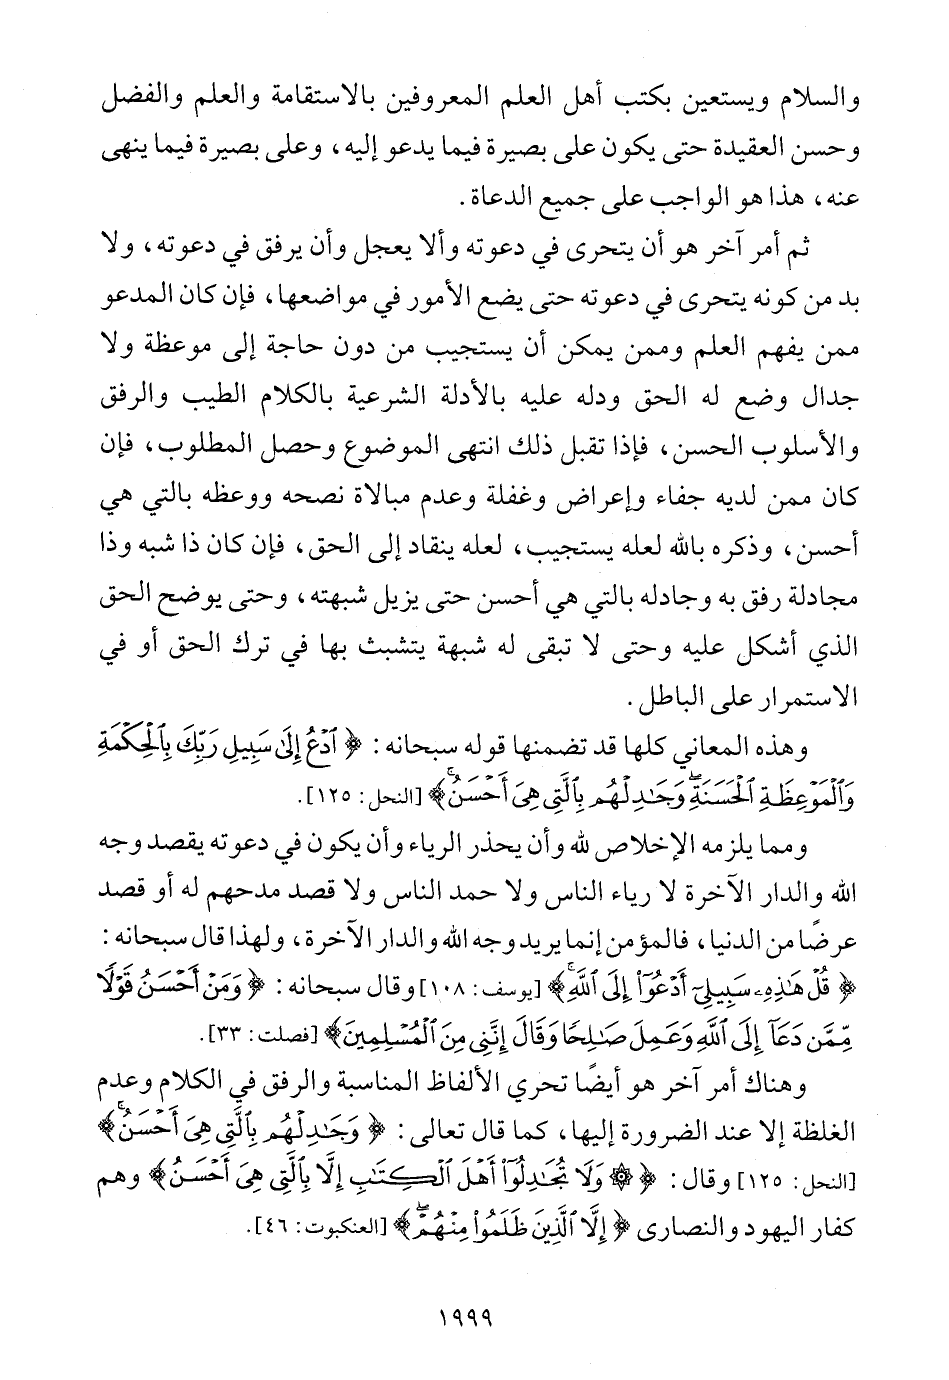 والسلام ويستعين بكتب أهل العلم المعروفين بالاستقامة والعلم والفضل
وحسن العقيدة حتى يكون على بصيرة فيما يدعو إليه، وعلى بصيرة فيما ينهى
عنه، هذا هو الواجب على جميع الدعاة.
ثم أمر آخر هو أن يتحرى في دعوته وألا يعجل وأن يرفق في دعوته، ولا
بد من كونه يتحرى في دعوته حتى يضع الأمور في مواضعها، فإن كان المدعو
ممن يفهم العلم وممن يمكن أن يستجيب من دون حاجة إلى موعظة ولا
جدال وضع له الحق ودله عليه بالأدلة الشرعية بالكلام الطيب والرفق
والأسلوب الحسن، فإذا تقبل ذلك انتهى الموضوع وحصل المطلوب، فإن
كان ممن لديه جفاء وإعراض وغفلة وعدم مبالاة نصحه ووعظه بالتي هي
أحسن، وذكره بالله لعله يستجيب، لعله ينقاد إلى الحق، فإن كان ذا شبه وذا
مجادلة رفق به وجادله بالتي هي أحسن حتى يزيل شبهته، وحتى يوضح الحق
الذي أشكل عليه وحتى لا تبقى له شبهة يتشبث بها في ترك الحق أو في
الاستمرار على الباطل.
وهذه المعاني كلها قد تضمنها قوله سبحانه: ﴿ٱدْعُ إِلَىٰ سَبِيلِ رَبِّكَ بِٱلْحِكْمَةِ
وَٱلْمَوْعِظَةِ ٱلْحَسَنَةِۖ وَجَٰدِلْهُم بِٱلَّتِى هِىَ أَحْسَنُۚ﴾ [النحل: ١٢٥].
ومما يلزمه الإخلاص لله وأن يحذر الرياء وأن يكون في دعوته يقصد وجه
الله والدار الآخرة لا رياء الناس ولا حمد الناس ولا قصد مدحهم له أو قصد
عرضًا من الدنيا، فالمؤمن إنما يريد وجه الله والدار الآخرة، ولهذا قال سبحانه:
﴿قُلْ هَٰذِهِۦ سَبِيلِىٓ أَدْعُوٓا۟ إِلَى ٱللَّهِۚ﴾ [يوسف: ١٠٨] وقال سبحانه: ﴿وَمَنْ أَحْسَنُ قَوْلًا
مِّمَّن دَعَآ إِلَى ٱللَّهِ وَعَمِلَ صَٰلِحًا وَقَالَ إِنَّنِى مِنَ ٱلْمُسْلِمِينَ﴾ [فصلت: ٣٣].
وهناك أمر آخر هو أيضًا تحري الألفاظ المناسبة والرفق في الكلام وعدم
الغلظة إلا عند الضرورة إليها، كما قال تعالى: ﴿وَجَٰدِلْهُم بِٱلَّتِى هِىَ أَحْسَنُۚ﴾
[النحل: ١٢٥] وقال: ﴿۞ وَلَا تُجَٰدِلُوٓا۟ أَهْلَ ٱلْكِتَٰبِ إِلَّا بِٱلَّتِى هِىَ أَحْسَنُ﴾ وهم
كفار اليهود والنصارى ﴿إِلَّا ٱلَّذِينَ ظَلَمُوا۟ مِنْهُمْۖ﴾ [العنكبوت: ٤٦].
١٩٩٩